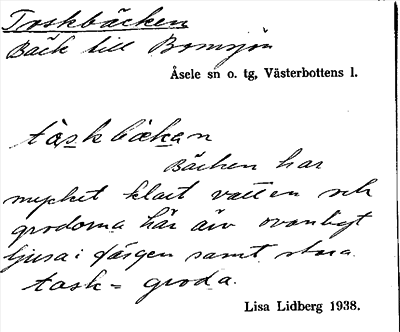 Toskbäcken
Bäck till Bomsjön
Åsele sn o. tg, Västerbottens l.
tåskbäkan
Bäcken har
mycket klart vatten och
grodorna här äro ovanligt
ljusa i färgen samt stora.
tosk = groda.
Lisa Lidberg 1938.